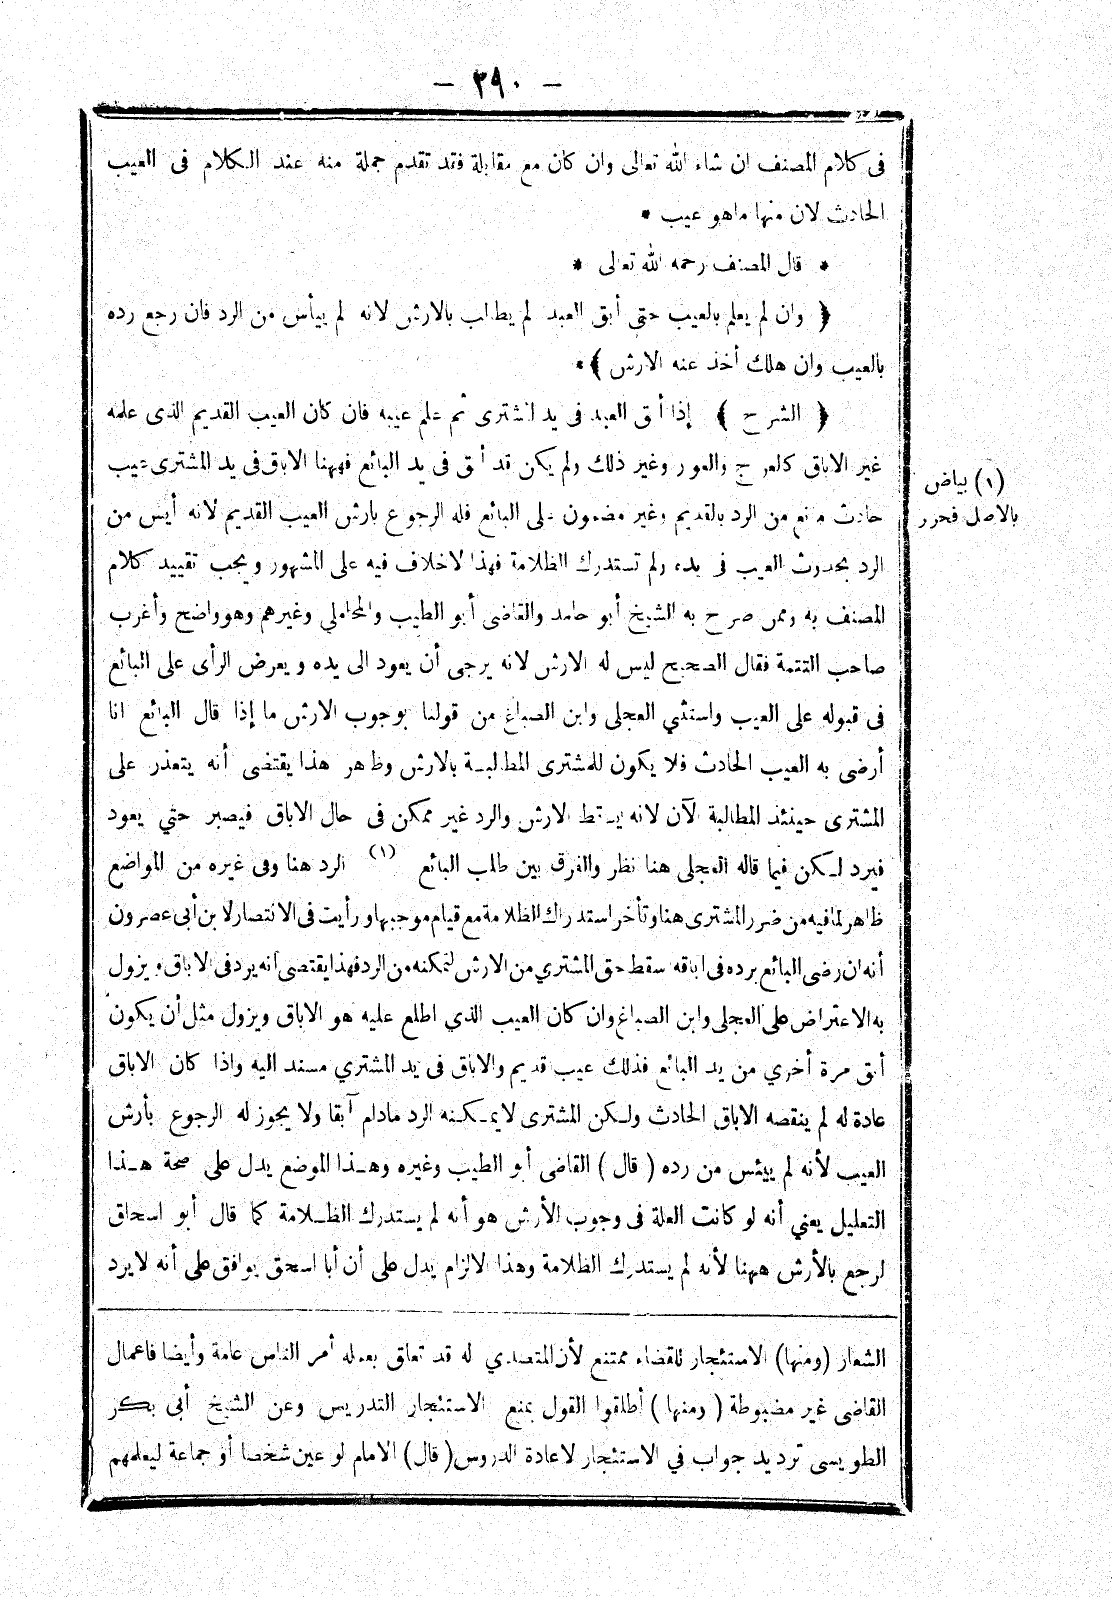 — ٣٩٠ —
فى كلام المصنف ان شاء الله تعالى وان كان مع مقابلة فقد تقدم جملة منه عند الكلام فى العيب
الحادث لان منها ماهو عيب *
* قال المصنف رحمه الله تعالى *
﴿ وان لم يعلم بالعيب حتى أبق العبد لم يطالب بالارش لانه لم ييأس من الرد فان رجع رده
بالعيب وان هلك أخذ عنه الارش ﴾*
﴿ الشرح ﴾ إذا أبق العبد فى يد المشترى ثم علم عيبه فان كان العيب القديم الذى علمه
غير الاباق كالعرج والعور وغير ذلك ولم يكن قد أبق فى يد البائع فههنا الاباق فى يد المشترى عيب
حادث مانع من الرد بالقديم وغير مضمون على البائع فله الرجوع بارش العيب القديم لانه أيس من
الرد بحدوث العيب فى يده ولم تستدرك الظلامة فهذا لاخلاف فيه على المشهور ويجب تقييد كلام
المصنف به وممن صرح به الشيخ أبو حامد والقاضى أبو الطيب والمحاملي وغيرهم وهوواضح وأغرب
صاحب التتمة فقال الصحيح ليس له الارش لانه يرجى أن يعود الى يده ويعرض الرأى على البائع
فى قبوله على العيب واستثني العجلى وابن الصباغ من قولنا بوجوب الارش ما إذا قال البائع انا
أرضى به العيب الحادث فلا يكون للمشترى المطالبة بالارش وظاهر هذا يقتضى أنه يتعذر على
المشترى حينئذ المطالبة الآن لانه يسقط الارش والرد غير ممكن فى حال الاباق فيصبر حتي يعود
فيرد لكن فيما قاله العجلى هنا نظر والفرق بين طلب البائع (١) الرد هنا وفى غيره من المواضع
ظاهر لمافيه من ضرر المشترى هنا وتأخر استدراك الظلامة مع قيام موجبها ورأيت فى الانتصار لابن أبى عصرون
أنه ان رضى البائع برده فى اباقه سقط حق المشتري من الارش لتمكنه من الرد فهذا يقتضى أنه يرد فى الاباق ويزول
به الاعتراض على العجلى وابن الصباغ وان كان العيب الذي اطلع عليه هو الاباق ويزول مثل أن يكون
أبق مرة أخري من يد البائع فذلك عيب قديم والاباق فى يد المشتري مسند اليه واذا كان الاباق
عادة له لم ينقصه الاباق الحادث ولكن المشترى لايمكنه الرد مادام آبقا ولا يجوز له الرجوع بأرش
العيب لأنه لم ييئس من رده ( قال ) القاضى أبو الطيب وغيره وهذا الموضع يدل على صحة هذا
التعليل يعني أنه لو كانت العلة فى وجوب الأرش هو أنه لم يستدرك الظلامة كما قال أبو اسحاق
لرجع بالأرش ههنا لأنه لم يستدرك الظلامة وهذا الالزام يدل على أن أبا اسحق يوافق على أنه لايرد
(١) بياض
بالاصل فحرر
الشعار (ومنها) الاستئجار للقضاء ممتنع لأن المتصدي له قد تعلق بعمله أمر الناس عامة وأيضا فاعمال
القاضى غير مضبوطة ( ومنها ) أطلقوا القول بمنع الاستئجار التدريس وعن الشيخ أبى بكر
الطويسى ترديد جواب في الاستئجار لاعادة الدروس (قال) الامام لو عين شخصا أو جماعة ليعلمهم